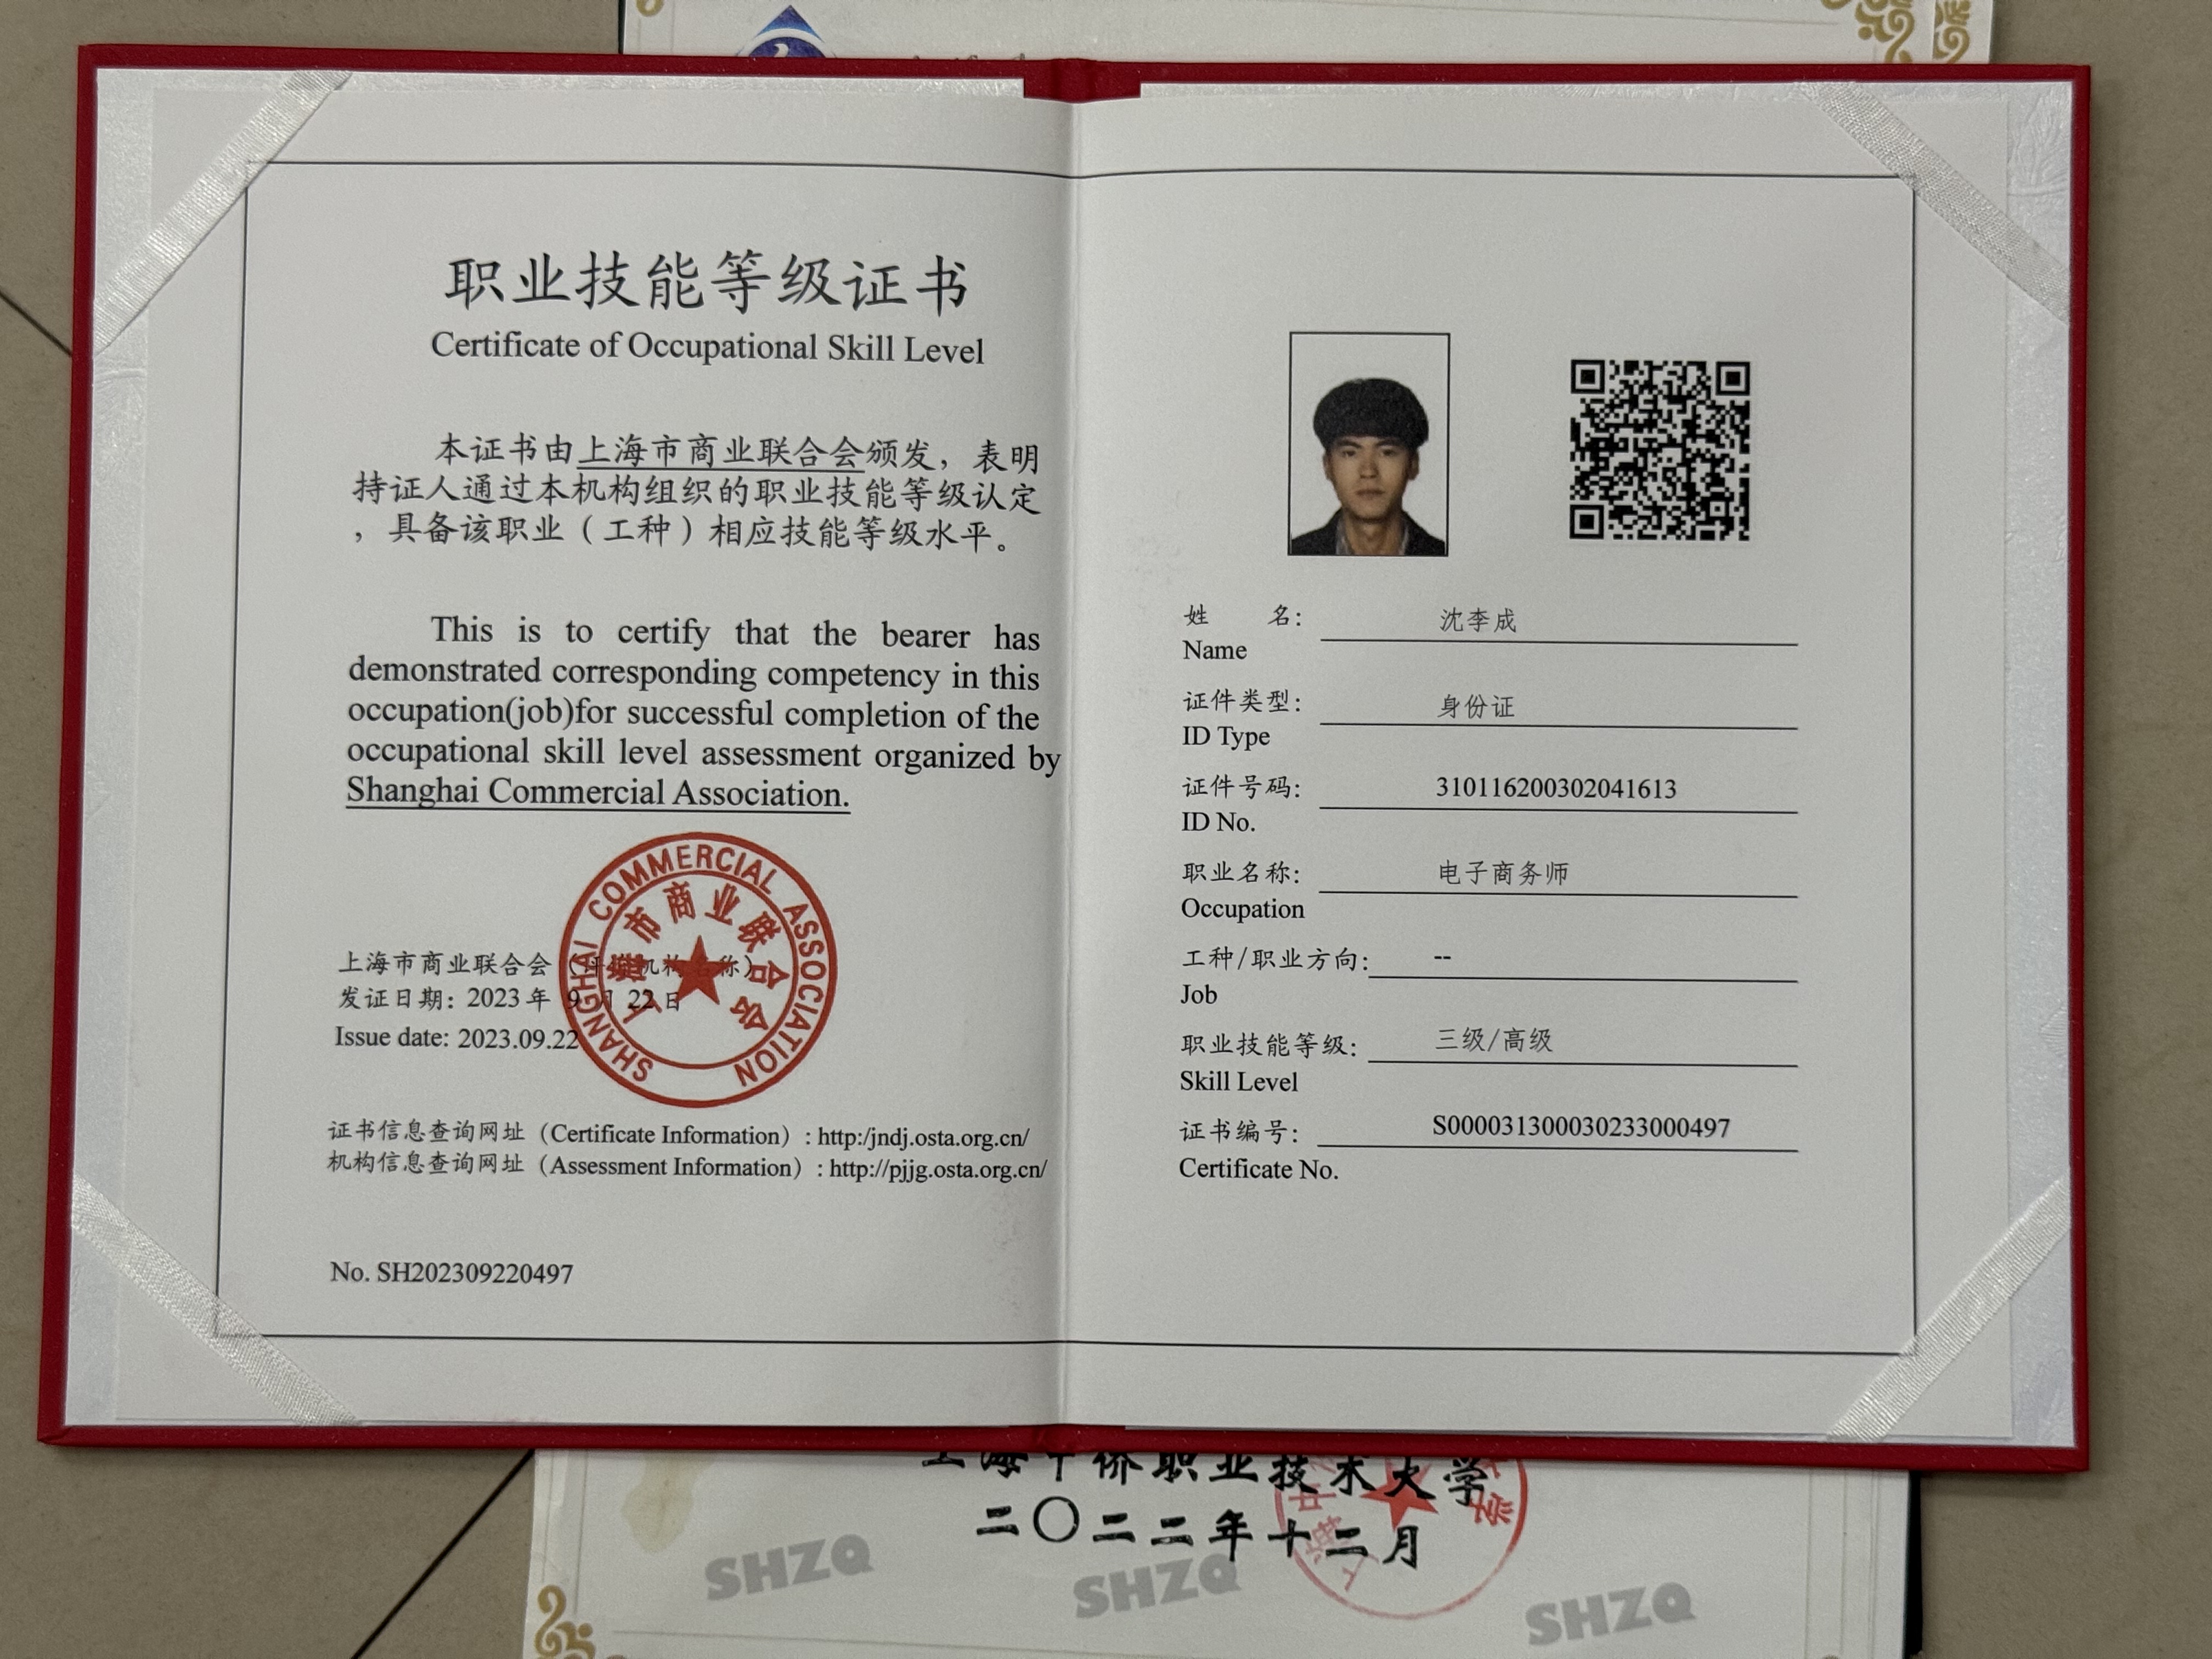 职业技能等级证书
Certificate of Occupational Skill Level
本证书由上海市商业联合会颁发，表明
持证人通过本机构组织的职业技能等级认定
，具备该职业（工种）相应技能等级水平。
This is to certify that the bearer has
demonstrated corresponding competency in this
occupation(job)for successful completion of the
occupational skill level assessment organized by
Shanghai Commercial Association.
SHANGHAI COMMERCIAL ASSOCIATION
上海市商业联合会
上海市商业联合会（评价机构名称）
发证日期：2023年 9月 22日
Issue date: 2023.09.22
证书信息查询网址（Certificate Information）: http:/jndj.osta.org.cn/
机构信息查询网址（Assessment Information）: http://pjjg.osta.org.cn/
No. SH202309220497
姓 名： 沈李成
Name
证件类型： 身份证
ID Type
证件号码： 310116200302041613
ID No.
职业名称： 电子商务师
Occupation
工种/职业方向： --
Job
职业技能等级： 三级/高级
Skill Level
证书编号： S000031300030233000497
Certificate No.
上海中侨职业技术大学
二〇二二年十二月
SHZQ
SHZQ
SHZQ